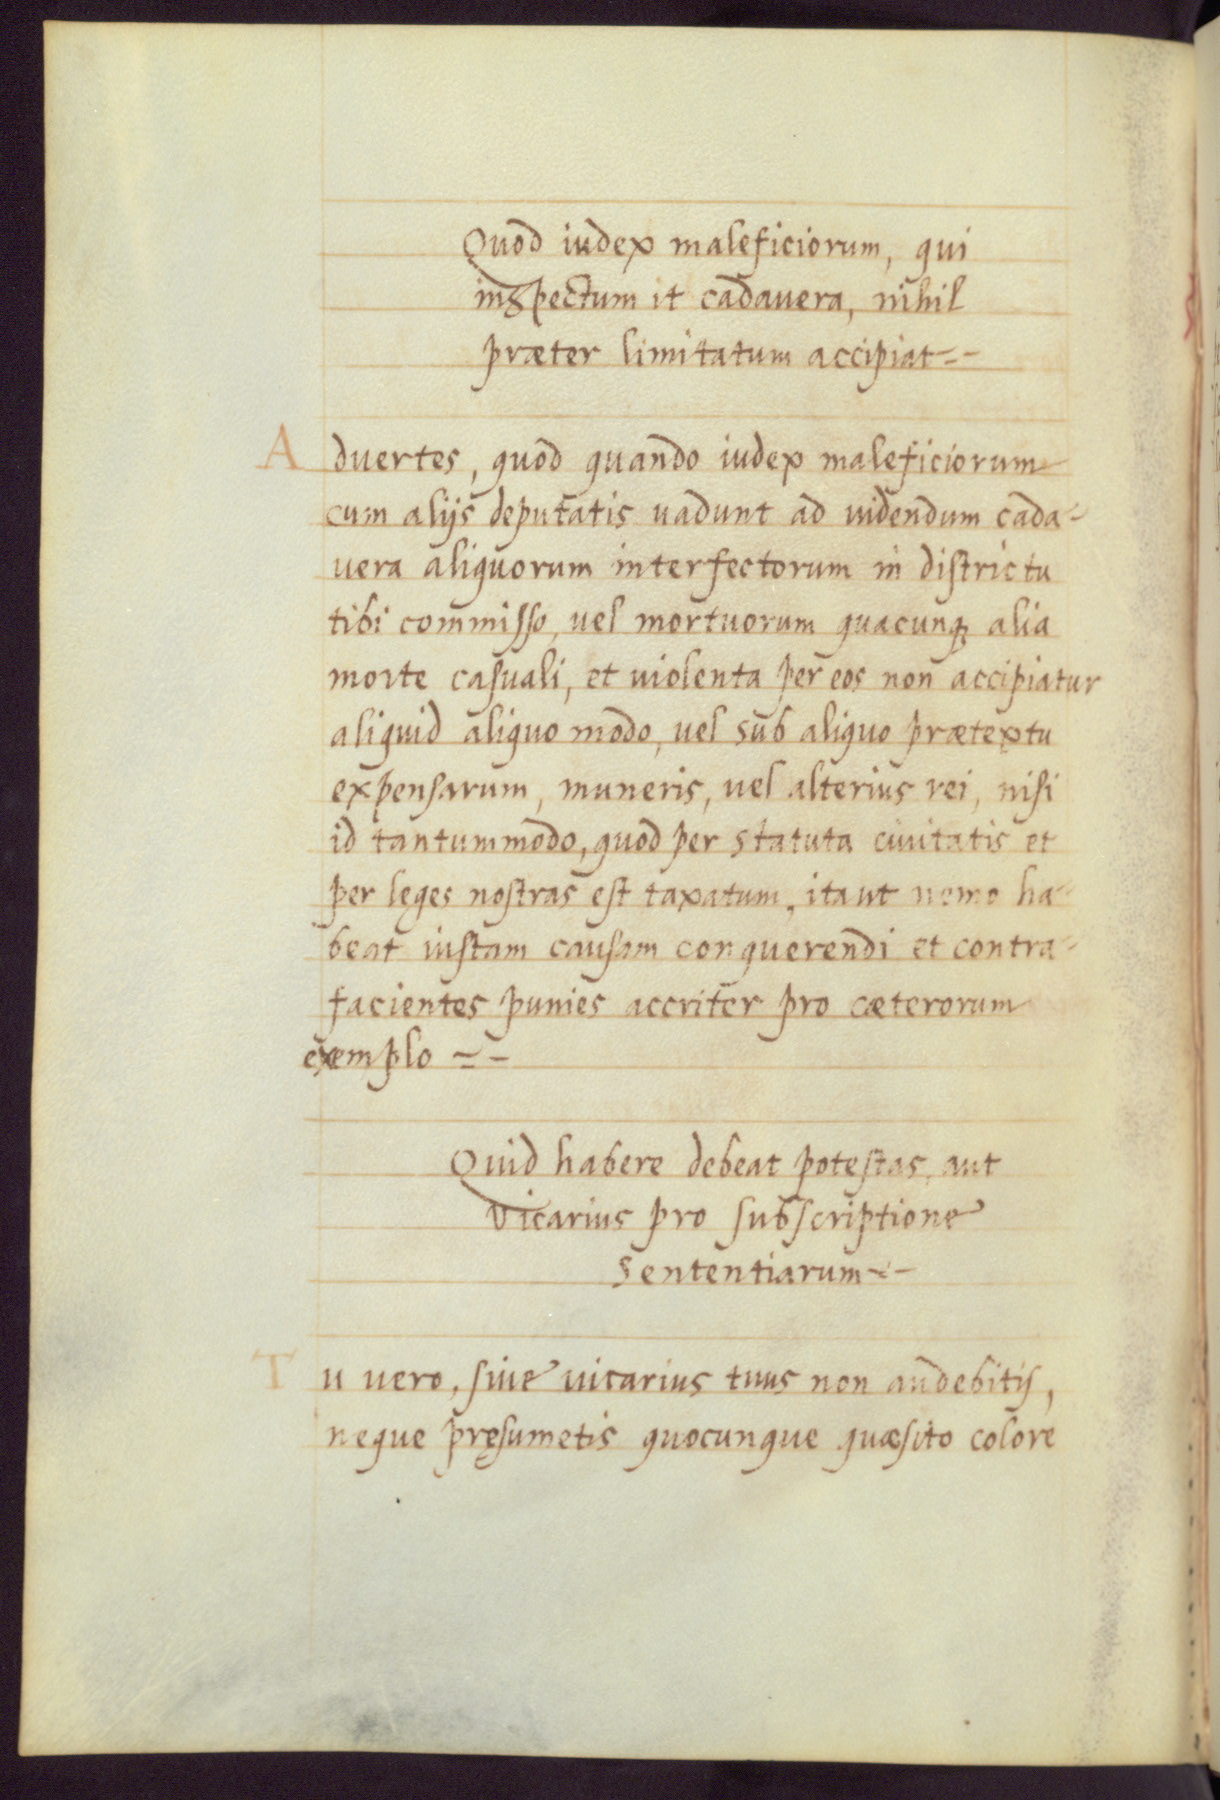 Quod iudex maleficiorum, qui
inspectum it cadauera, nihil
præter limitatum accipiat=-
Aduertes, quod quando iudex maleficiorum
cum alijs deputatis uadunt ad uidendum cada-
uera aliquorum interfectorum in districtu
tibi commisso, uel mortuorum quacunq; alia
morte casuali, et uiolenta per eos non accipiatur
aliquid aliquo modo, uel sub aliquo prætextu
expensarum, muneris, uel alterius rei, nisi
id tantummodo, quod per statuta ciuitatis et
per leges nostras est taxatum, ita ut nemo ha-
beat iustam causam conquerendi et contra-
facientes punies accriter pro cæterorum
exemplo =-
Quid habere debeat potestas, aut
Vicarius pro subscriptione
sententiarum=-
Tu uero, siue uicarius tuus non audebitis,
neque pręsumetis quocunque quæsito colore